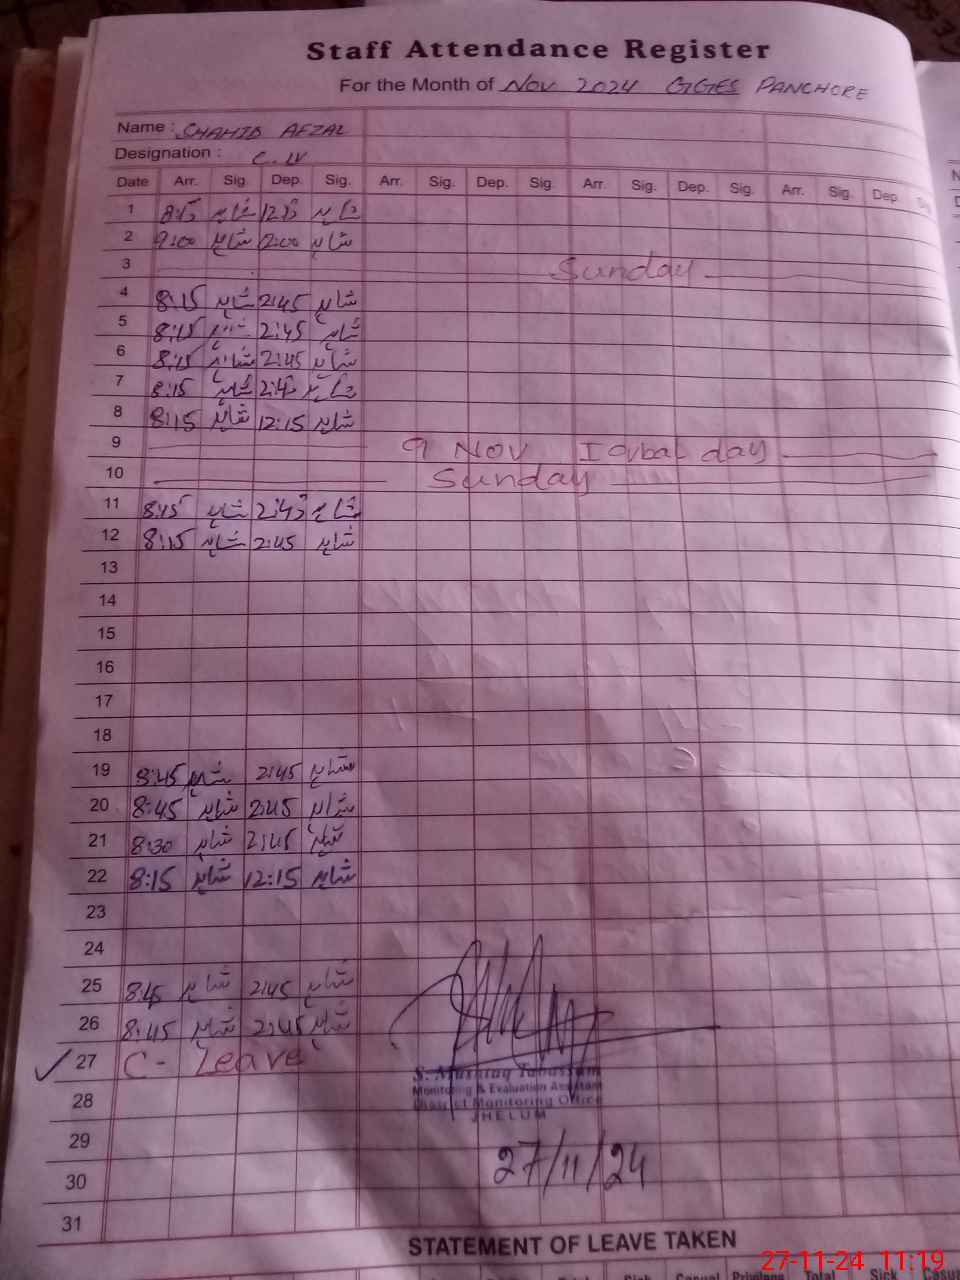 Staff Attendance Register
For the Month of Nov 2024 GGES PANCHORE
Name : SHAHID AFZAL
Designation : C. IV
Date Arr. Sig. Dep. Sig. Arr. Sig. Dep. Sig. Arr. Sig. Dep. Sig. Arr. Sig. Dep.
1 8:15 شاہد شاہد
2 9:00 شاہد 12:00 شاہد
3 Sunday
4 8:15 شاہد 2:45 شاہد
5 8:15 شاہد 2:45 شاہد
6 8:15 شاہد 2:45 شاہد
7 8:15 شاہد 2:45 شاہد
8 8:15 شاہد 12:15 شاہد
9 9 Nov Iqbal day
10 Sunday
11 8:15 شاہد 2:45 شاہد
12 8:15 شاہد 2:45 شاہد
13
14
15
16
17
18
19 8:45 شاہد 2:45 شاہد
20 8:45 شاہد 2:45 شاہد
21 8:30 شاہد 2:45 شاہد
22 8:15 شاہد 12:15 شاہد
23
24
25 8:45 شاہد 2:45 شاہد
26 8:45 شاہد 2:45 شاہد
27 C- Leave
S. Mushtaq Tabassum
28 Monitoring & Evaluation Assistant
District Monitoring Office
JHELUM
29
27/11/24
30
31
STATEMENT OF LEAVE TAKEN
27-11-24 11:19
Sick Casual Privilege Total Sick